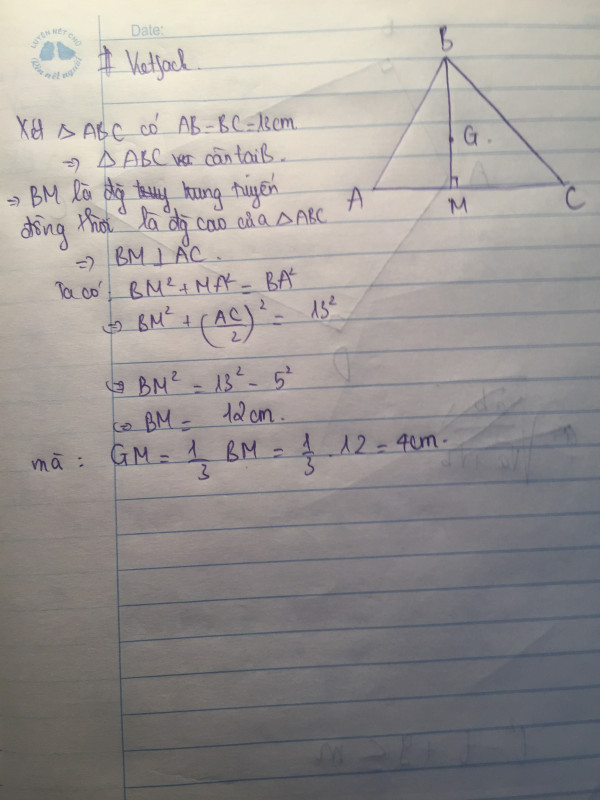 LUYỆN NÉT CHỮ
Date:
# Vietjack.
Xét △ ABC có AB = BC = 13cm
=> △ ABC cân tại B.
=> BM là đg trung tuyến
đồng thời là đg cao của △ABC
=> BM ⊥ AC.
Ta có: BM² + MA² = BA²
=> BM² + (AC/2)² = 13²
=> BM² = 13² - 5²
=> BM = 12cm.
mà: GM = 1/3 BM = 1/3 . 12 = 4cm.
B
G.
A
M
C